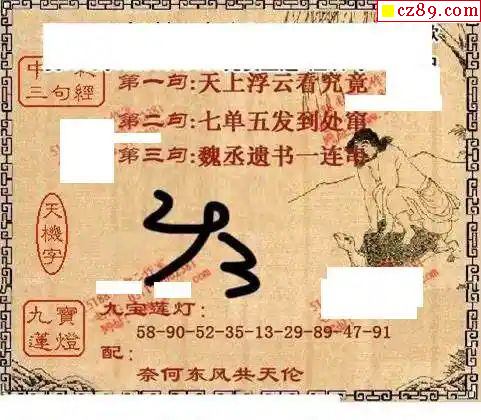 cz89.com
三句經
第一句:天上浮云看究竟
第二句:七单五发到处窜
第三句:魏丞遗书一连串
天機字
九寶蓮燈
九宝莲灯:
58-90-52-35-13-29-89-47-91
配:
奈何东风共天伦